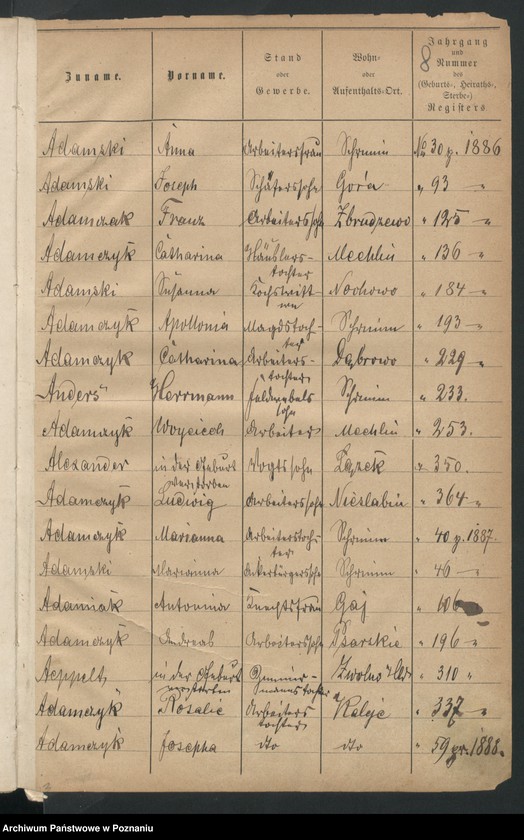 Zuname. Vorname. Stand oder Gewerbe. Wohn- oder Aufenthalts-Ort. Jahrgang und Nummer des (Geburts-, Heiraths-, Sterbe-) Registers
8
Adamski Anna Arbeitersfrau Schrimm No 30 p. 1886
Adamski Joseph Schäferssohn Góra " 93 "
Adamczak Franz Arbeiterssohn Zbrudzewo " 125 "
Adamczyk Catharina Häuslers- Mechlin " 136 "
tochter
Adamski Susanna Nochowo " 184 "
Adamczyk Apollonia Magdstoch- Schrimm " 193 "
ter
Adamczyk Catharina Arbeiters- Dąbrowo " 229 "
tochter
Anders Herrmann Feldwebels Schrimm " 233.
sohn
Adamczyk Woyciech Arbeiter Mechlin " 253.
Alexander in der Geburt Vogtssohn Łęzek " 350.
verstorben
Adamczyk Ludwig Arbeiterssohn Nieslabin " 364 "
Adamczyk Marianna Arbeiterstoch- Schrimm " 40 p. 1887.
ter
Adamski Marianna Ackerbürgerssohn Schrimm " 46 "
Adamiak Antonina Knechtsfrau Gaj " 106
Adamczyk Andreas Arbeiterssohn Psarskie " 196 "
Aeppelt in der Geburt Zimmer- " 310 "
verstorben mannstochter
Adamczyk Rosalie Arbeiters " 337 "
tochter
Adamczyk Josepha dto dto " 59 pr. 1888.
Archiwum Państwowe w Poznaniu